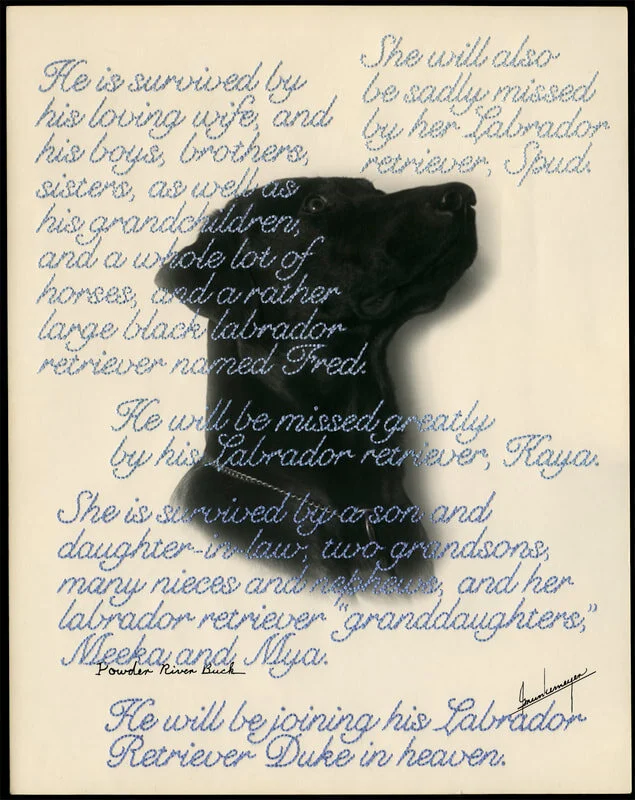 She will also
be sadly missed
by her Labrador
retriever, Spud.
He is survived by
his loving wife, and
his boys, brothers,
sisters, as well as
his grandchildren,
and a whole lot of
horses, and a rather
large black labrador
retriever named Fred.
He will be missed greatly
by his Labrador retriever, Kaya.
She is survived by a son and
daughter-in-law, two grandsons,
many nieces and nephews, and her
labrador retriever "granddaughters,"
Meeka and Mya.
Powder River Buck
He will be joining his Labrador
Retriever Duke in heaven.